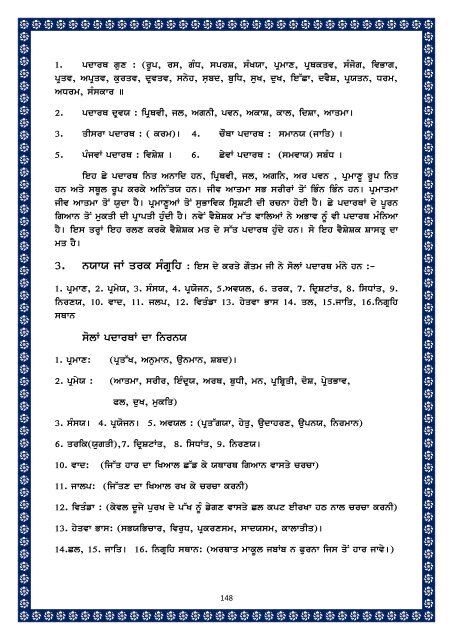 1. ਪਦਾਰਥ ਗੁਣ : (ਰੂਪ, ਰਸ, ਗੰਧ, ਸਪਰਸ਼, ਸੰਖਯਾ, ਪ੍ਰਮਾਣ, ਪ੍ਰਥਕਤਵ, ਸੰਜੋਗ, ਵਿਭਾਗ,
ਪ੍ਰਤਵ, ਅਪ੍ਰਤਵ, ਗੁਰਤਵ, ਦ੍ਰਵਤਵ, ਸਨੇਹ, ਸ਼ਬਦ, ਬੁਧਿ, ਸੁਖ, ਦੁਖ, ਇੱਛਾ, ਦਵੈਸ਼, ਪ੍ਰਯਤਨ, ਧਰਮ,
ਅਧਰਮ, ਸੰਸਕਾਰ ॥
2. ਪਦਾਰਥ ਦ੍ਰਵਯ : ਪ੍ਰਿਥਵੀ, ਜਲ, ਅਗਨੀ, ਪਵਨ, ਅਕਾਸ਼, ਕਾਲ, ਦਿਸ਼ਾ, ਆਤਮਾ।
3. ਤੀਸਰਾ ਪਦਾਰਥ : ( ਕਰਮ)। 4. ਚੌਥਾ ਪਦਾਰਥ : ਸਮਾਨਯ (ਜਾਤਿ) ।
5. ਪੰਜਵਾਂ ਪਦਾਰਥ : ਵਿਸ਼ੇਸ਼ । 6. ਛੇਵਾਂ ਪਦਾਰਥ : (ਸਮਵਾਯ) ਸਬੰਧ ।
ਇਹ ਛੇ ਪਦਾਰਥ ਨਿਤ ਅਨਾਦਿ ਹਨ, ਪ੍ਰਿਥਵੀ, ਜਲ, ਅਗਨਿ, ਅਰ ਪਵਨ , ਪ੍ਰਮਾਣੂ ਰੂਪ ਨਿਤ
ਹਨ ਅਤੇ ਸਥੂਲ ਰੂਪ ਕਰਕੇ ਅਨਿੱਤਯ ਹਨ। ਜੀਵ ਆਤਮਾ ਸਭ ਸਰੀਰਾਂ ਤੋਂ ਭਿੰਨ ਭਿੰਨ ਹਨ। ਪ੍ਰਮਾਤਮਾ
ਜੀਵ ਆਤਮਾ ਤੋਂ ਯੁਦਾ ਹੈ। ਪ੍ਰਮਾਣੂਆਂ ਤੋਂ ਸੁਭਾਵਿਕ ਸ੍ਰਿਸ਼ਟੀ ਦੀ ਰਚਨਾ ਹੋਈ ਹੈ। ਛੇ ਪਦਾਰਥਾਂ ਦੇ ਪੂਰਨ
ਗਿਆਨ ਤੋਂ ਮੁਕਤੀ ਦੀ ਪ੍ਰਾਪਤੀ ਹੁੰਦੀ ਹੈ। ਨਵੇਂ ਵੈਸ਼ੇਸ਼ਕ ਮੱਤ ਵਾਲਿਆਂ ਨੇ ਅਭਾਵ ਨੂੰ ਵੀ ਪਦਾਰਥ ਮੰਨਿਆ
ਹੈ। ਇਸ ਤਰ੍ਹਾਂ ਇਹ ਰਲਣ ਕਰਕੇ ਵੈਸ਼ੇਸ਼ਕ ਮਤ ਦੇ ਸੱਤ ਪਦਾਰਥ ਹੁੰਦੇ ਹਨ। ਸੋ ਇਹ ਵੈਸ਼ੇਸ਼ਕ ਸ਼ਾਸਤ੍ਰ ਦਾ
ਮਤ ਹੈ।
3. ਨਯਾਯ ਜਾਂ ਤਰਕ ਸੰਗ੍ਰਹਿ : ਇਸ ਦੇ ਕਰਤੇ ਗੌਤਮ ਜੀ ਨੇ ਸੋਲਾਂ ਪਦਾਰਥ ਮੰਨੇ ਹਨ :-
1. ਪ੍ਰਮਾਣ, 2. ਪ੍ਰਮੇਯ, 3. ਸੰਸਯ, 4. ਪ੍ਰਯੋਜਨ, 5.ਅਵਯਲ, 6. ਤਰਕ, 7. ਦ੍ਰਿਸ਼ਟਾਂਤ, 8. ਸਿਧਾਂਤ, 9.
ਨਿਰਣਯ, 10. ਵਾਦ, 11. ਜਲਪ, 12. ਵਿਤੰਡਾ 13. ਹੇਤਵਾ ਭਾਸ 14. ਤਲ, 15.ਜਾਤਿ, 16.ਨਿਗ੍ਰਹਿ
ਸਥਾਨ
ਸੋਲਾਂ ਪਦਾਰਥਾਂ ਦਾ ਨਿਰਨਯ
1. ਪ੍ਰਮਾਣ: (ਪ੍ਰਤੱਖ, ਅਨੁਮਾਨ, ਉਨਮਾਨ, ਸ਼ਬਦ)।
2. ਪ੍ਰਮੇਯ : (ਆਤਮਾ, ਸਰੀਰ, ਇੰਦ੍ਰਯ, ਅਰਥ, ਬੁਧੀ, ਮਨ, ਪ੍ਰਬ੍ਰਿਤੀ, ਦੋਸ਼, ਪ੍ਰੇਤਭਾਵ,
ਫਲ, ਦੁਖ, ਮੁਕਤਿ)
3. ਸੰਸਯ। 4. ਪ੍ਰਯੋਜਨ। 5. ਅਵਯਲ : (ਪ੍ਰਤੱਗਯਾ, ਹੇਤੁ, ਉਦਾਹਰਣ, ਉਪਨਯ, ਨਿਰਮਾਨ)
6. ਤਰਕਿ(ਯੁਗਤੀ),7. ਦ੍ਰਿਸ਼ਟਾਂਤ, 8. ਸਿਧਾਂਤ, 9. ਨਿਰਣਯ।
10. ਵਾਦ: (ਜਿੱਤ ਹਾਰ ਦਾ ਖਿਆਲ ਛੱਡ ਕੇ ਯਥਾਰਥ ਗਿਆਨ ਵਾਸਤੇ ਚਰਚਾ)
11. ਜਾਲਪ: (ਜਿੱਤਣ ਦਾ ਖਿਆਲ ਰਖ ਕੇ ਚਰਚਾ ਕਰਨੀ)
12. ਵਿਤੰਡਾ : (ਕੇਵਲ ਦੂਜੇ ਪੁਰਖ ਦੇ ਪੱਖ ਨੂੰ ਡੇਗਣ ਵਾਸਤੇ ਛਲ ਕਪਟ ਈਰਖਾ ਹਠ ਨਾਲ ਚਰਚਾ ਕਰਨੀ)
13. ਹੇਤਵਾ ਭਾਸ: (ਸਭਯਭਿਚਾਰ, ਵਿਰੁਧ, ਪ੍ਰਕਰਣਸਮ, ਸਾਦਯਸਮ, ਕਾਲਾਤੀਤ)।
14.ਛਲ, 15. ਜਾਤਿ। 16. ਨਿਗ੍ਰਹਿ ਸਥਾਨ: (ਅਰਥਾਤ ਮਾਕੂਲ ਜਬਾਂਬ ਨ ਫੁਰਨਾ ਜਿਸ ਤੋਂ ਹਾਰ ਜਾਵੇ।)
148